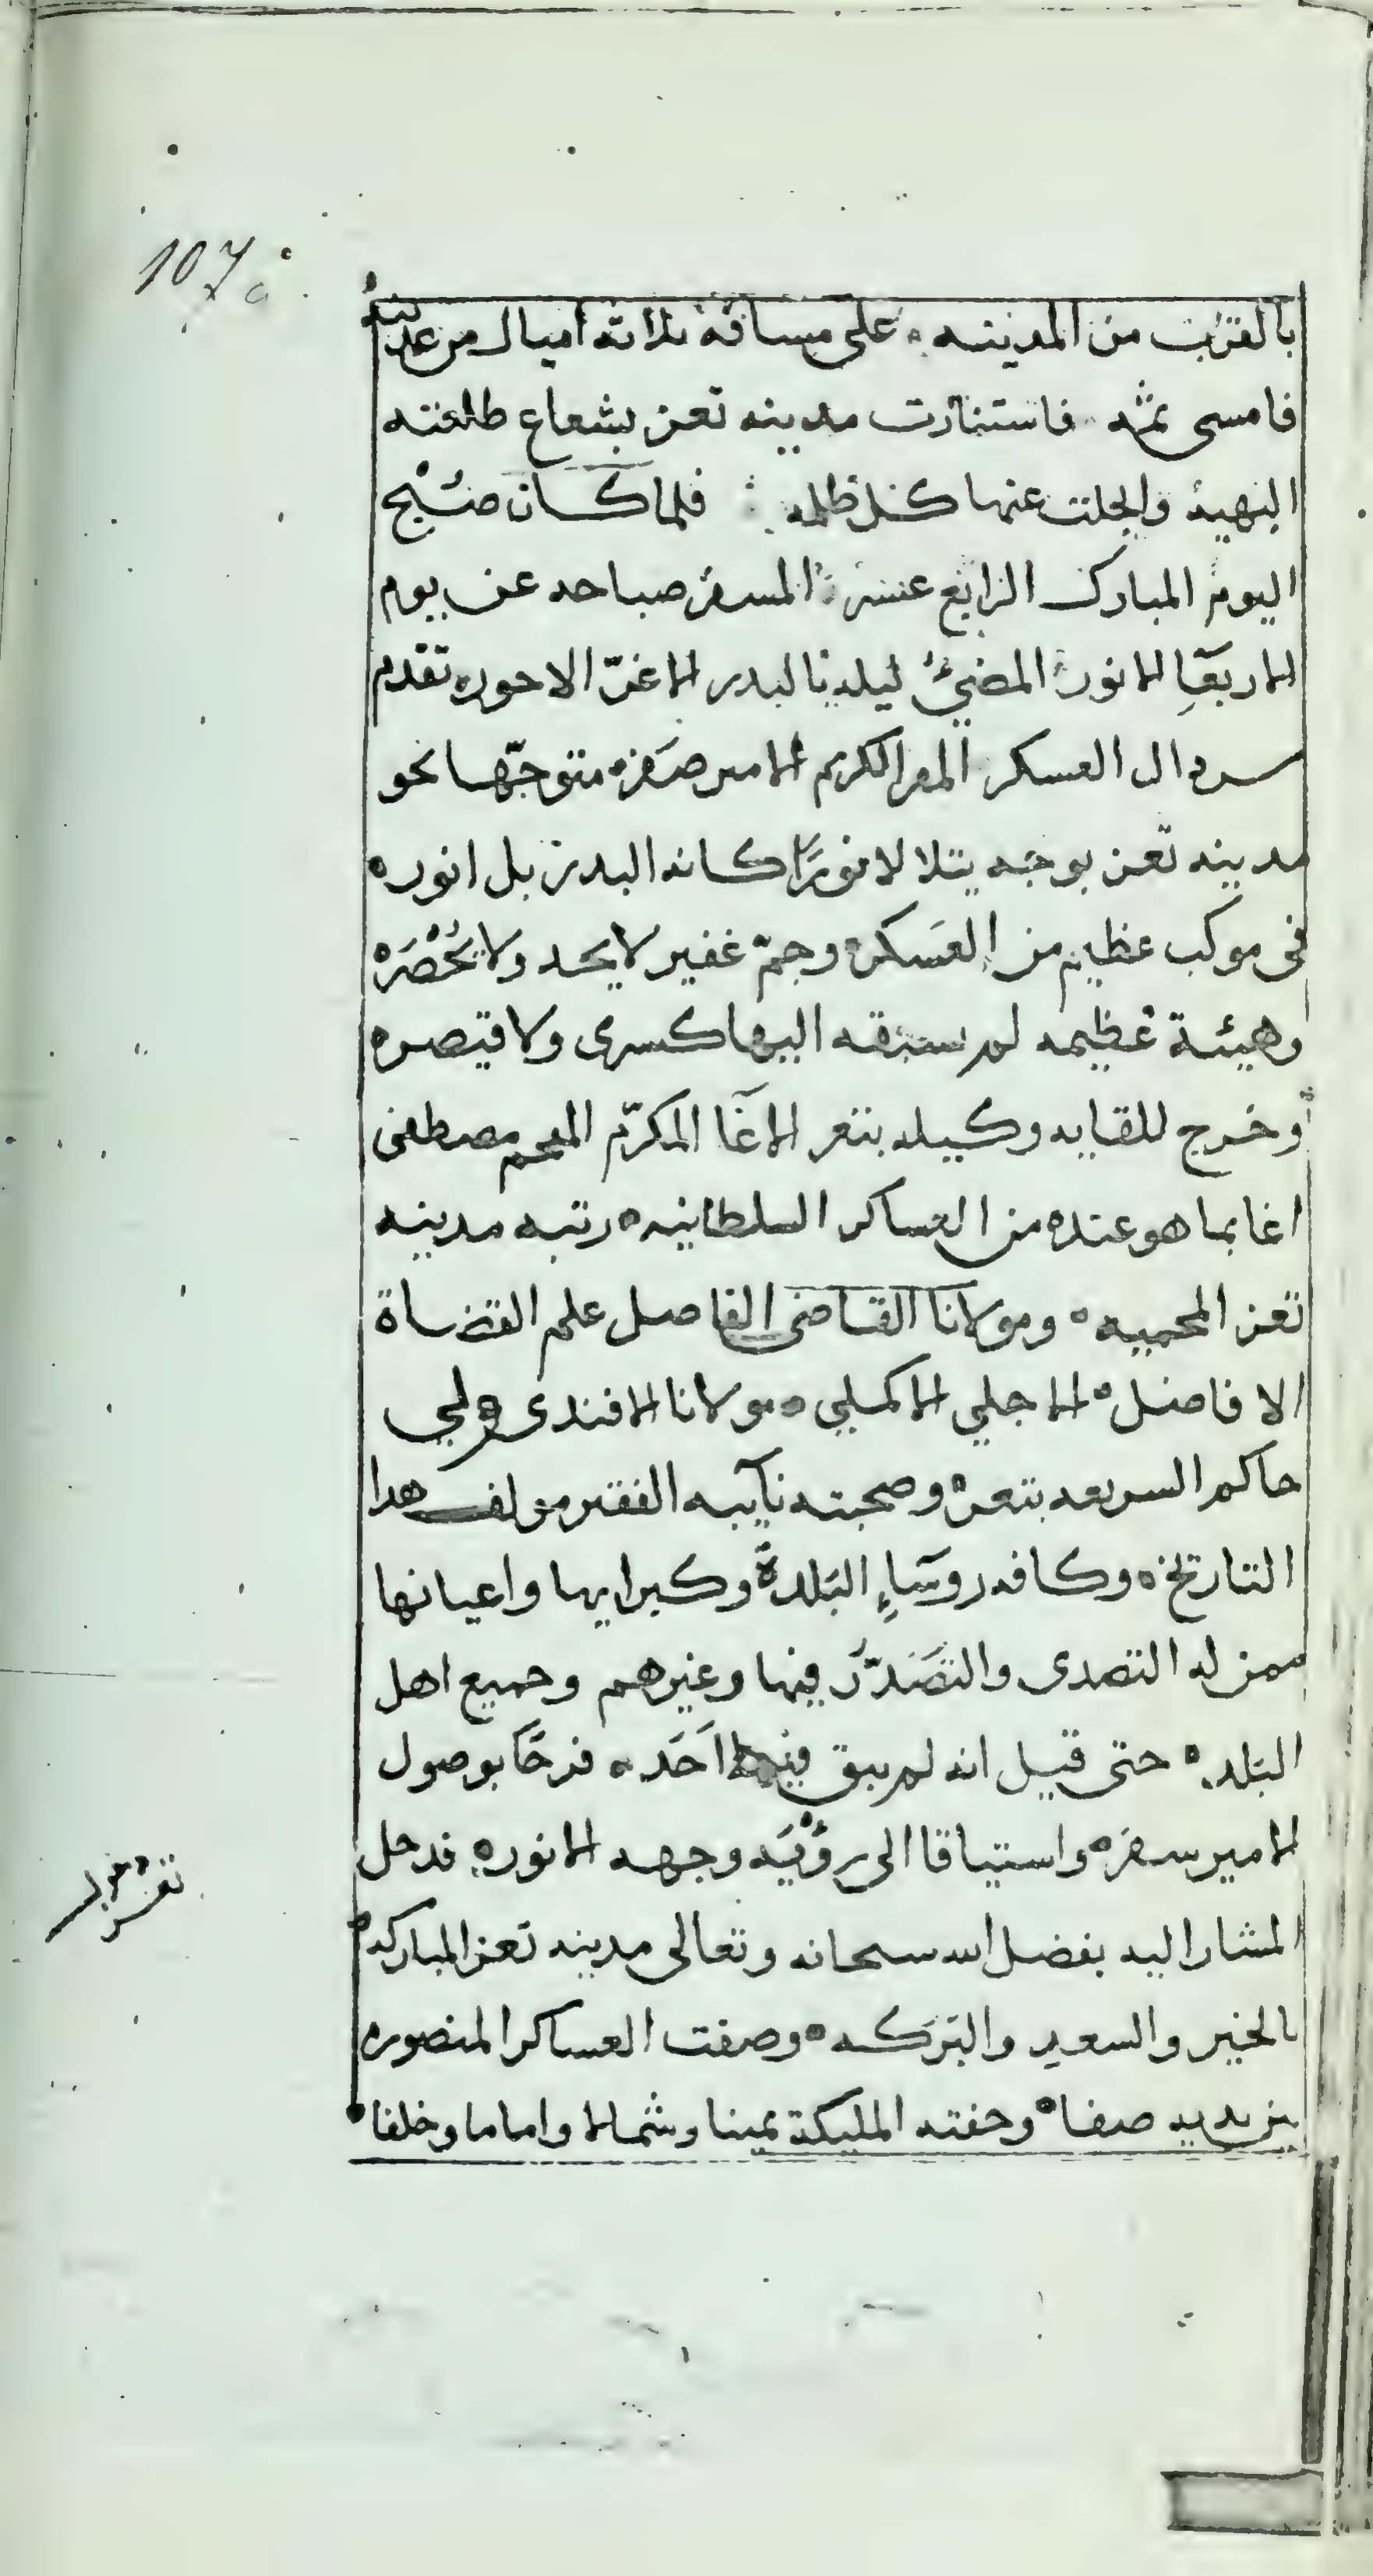 107
بالقرب من المدينه ه على مسافة ثلاثة اميال من عدينه
فامسى ثمه فاستنارت مدينه تعز بشعاع طلعته
البهيه وانجلت عنها كل ظلمه فلما كان صبح
اليوم المبارك الرابع عشر المسفر صباحه عن يوم
الاربعآِ الانور المضيء ليله بالبدر الاغرّ الاحور ه تقدم
سردال العسكر المقر الكريم الامير صفر ه متوجّها نحو
مدينه تعز بوجه يتلالا نورًا كانه البدر بل انور ه
فى موكب عظيم من العسكر ه وجمّ غفير لا يحد ولا يُحْصَر ه
وهيئة عظيمه لم يسبقه اليها كسرى ولا قيصر ه
وخرج للقايه وكيله بتعز الاغا المكرّم المفخم مصطفى
اغا بما هو عنده من العساكر السلطانيه ه رتبه مدينه
تعز المحميه ه ومولانا القاضى الفاضل علم القضاة
الافاضل ه الاجلي الاكملي ه مولانا الافندى ولي
حاكم الشريعه بتعز ه وصحبته نآيبه الفقير مولف هدا
التاريخ ه وكافه روسآءِ البلدة وكبرايها واعيانها
ممن له التصدى والتصَدّر فيها وغيرهم وجميع اهل
البلد ه حتى قيل انه لم يبق فيها اَحَد ه فرحًا بوصول
الامير سفر ه واشتياقا الى رؤيَه وجهه الانور ه فدخل
المشار اليه بفضل الله سبحانه وتعالى مدينه تعز المباركه
بالخير والسعد والبَركه ه وصفت العساكر المنصوره
بين يديه صفا ه وحفته المليكة يمينا وشمالا واماما وخلفا